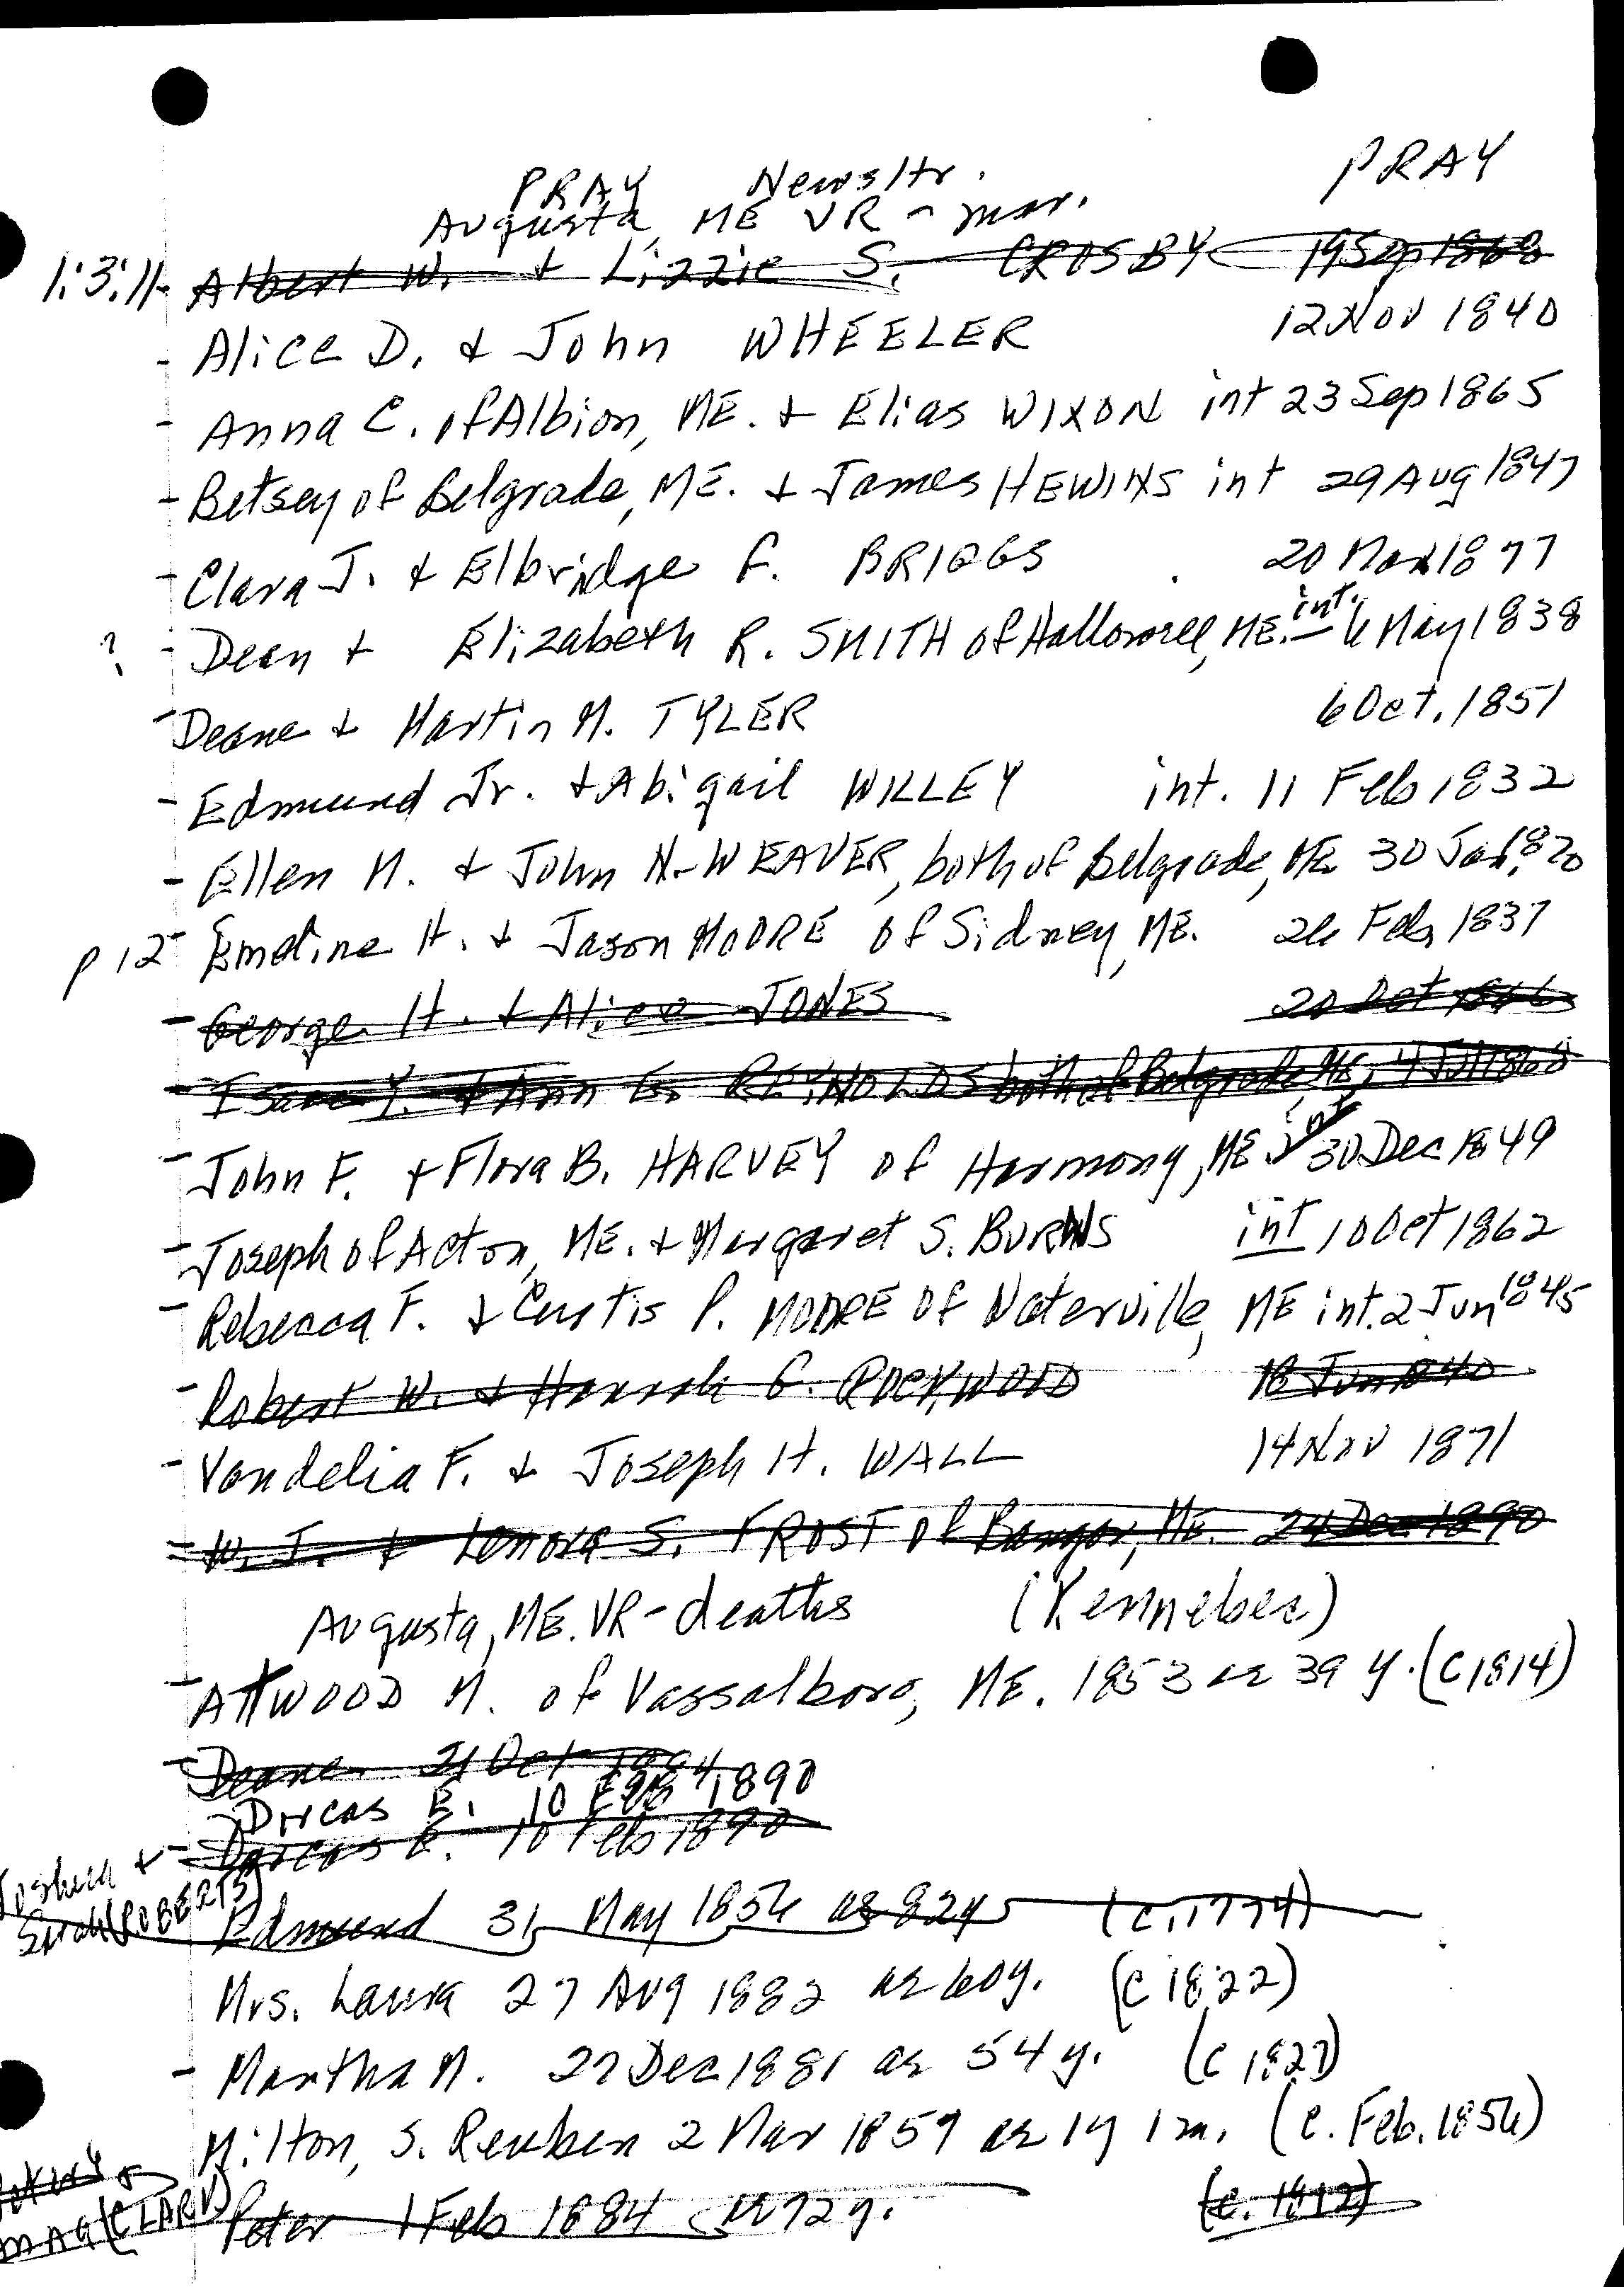 PRAY
PRAY Newsltr.
Augusta, ME VR - mar.
1:3:11- Albert W. + Lizzie S. CROSBY 19 Sep 1868
- Alice D. + John WHEELER 12 Nov 1840
- Anna C. of Albion, ME. + Elias WIXON int 23 Sep 1865
- Betsey of Belgrade, ME. + James HEWINS int 29 Aug 1847
- Clara J. + Elbridge F. BRIGGS 20 Mar 1877
? - Dean + Elizabeth R. SMITH of Hallowell, ME. int. 6 May 1838
- Deane + Martin M. TYLER 6 Oct. 1851
- Edmund Jr. + Abigail WILLEY int. 11 Feb 1832
- Ellen M. + John N. WEAVER, both of Belgrade, ME 30 Jan. 1870
p 12 - Emeline H. + Jason MOORE of Sidney, ME. 26 Feb 1837
- George H. + Alice JONES 20 Oct 1866
- Isaac Y. + Ann G. REYNOLDS both of Belgrade, ME, 4 Jul 1860
- John F. + Flora B. HARVEY of Harmony, ME int 30 Dec 1849
- Joseph of Acton, ME. + Margaret S. BURNS int 10 Oct 1862
- Rebecca F. + Curtis P. MOORE of Waterville, ME int. 2 Jun 1845
- Robert W. + Hannah G. ROCKWOOD 18 Jun 1840
- Vandelia F. + Joseph H. WALL 14 Nov 1871
- W. J. + Lenora S. FROST of Bangor, ME. 24 Dec 1890
Augusta, ME. VR - deaths (Kennebec)
- Attwood M. of Vassalboro, ME. 1853 ae 39 y. (c 1814)
- Deane 21 Oct
Dorcas E. 10 Feb 1890
- Dorcas E. 10 Feb 1890
Joshua +
Sarah (ROBERTS)
Edmund 31 May 1856 ae 82y (c. 1774)
Mrs. Laura 27 Aug 1882 ae 60y. (c 1822)
- Martha M. 27 Dec 1881 ae 54 y. (c 1827)
Milton, s. Reuben 2 Mar 1857 ae 1y 1m. (c. Feb. 1856)
(CLARK)
Peter 1 Feb 1884 ae 72 y. (c. 1812)